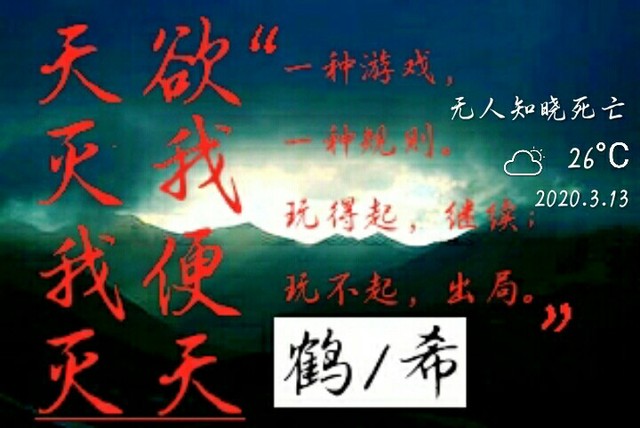 天欲
灭我
我便
灭天
“一种游戏，
一种规则。
玩得起，继续；
玩不起，出局。”
无人知晓死亡
26℃
2020.3.13
鹤/希